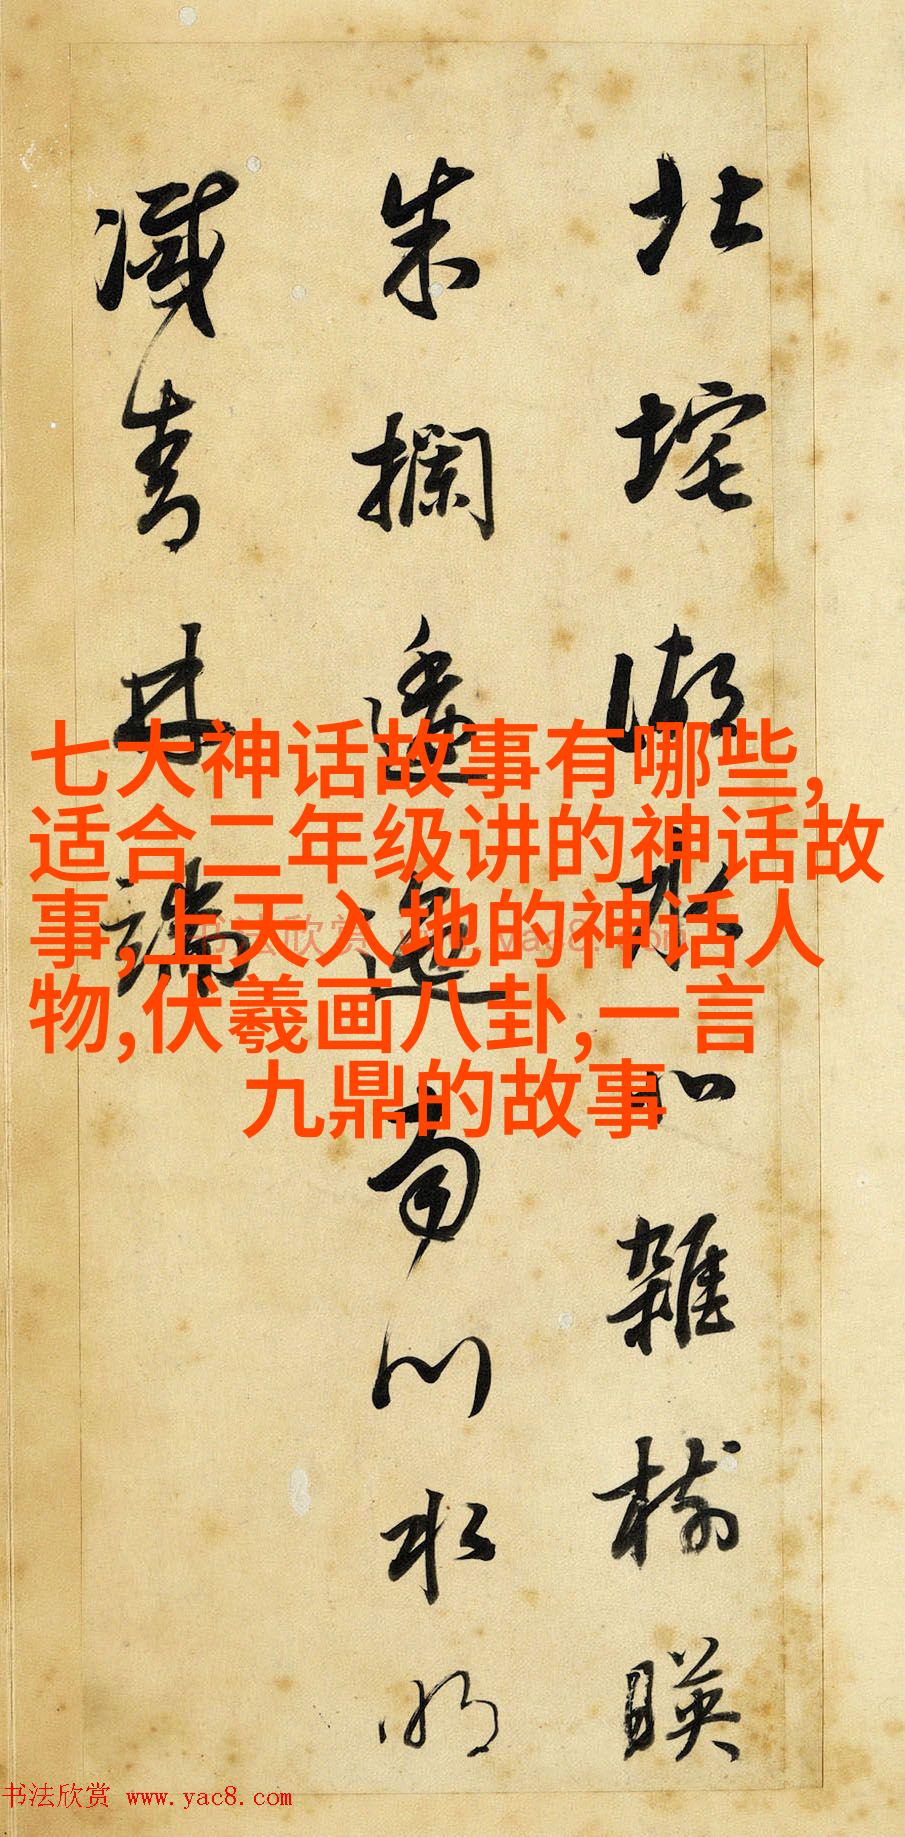 北垞湖水北雜樹暎
朱欄逶迤南川水明
滅青林端
七大神话故事有哪些,
适合二年级讲的神话故
事,上天入地的神话人
物,伏羲画八卦,一言
九鼎的故事
书法欣赏 www.yac8.com
书法欣赏 www.yac8.com